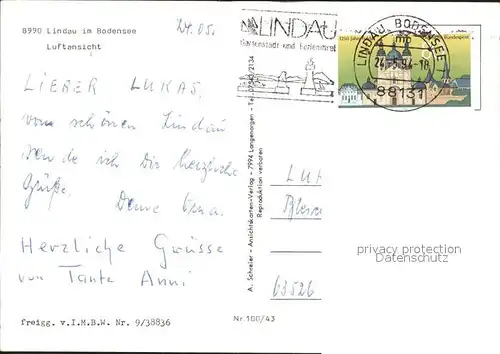 8990 Lindau im Bodensee
Luftansicht
24.05.
LIEBER LUKAS,
vom schönen Lindau
sende ich Dir herzliche
Grüße.
Deine Oma.
Herzliche Grüsse
von Tante Anni
freigg. v.I.M.B.W. Nr. 9/38836
A. Schreier - Ansichtskarten-Verlag - 7994 Langenargen - Tel.
Reproduktion verboten
Nr. 100/43
LINDAU
Gartenstadt und Ferieninsel
LINDAU, BODENSEE
mb
24.-5.94-18
88131
1250 Jahre
Bundespost
LU
63526
privacy protection
Datenschutz